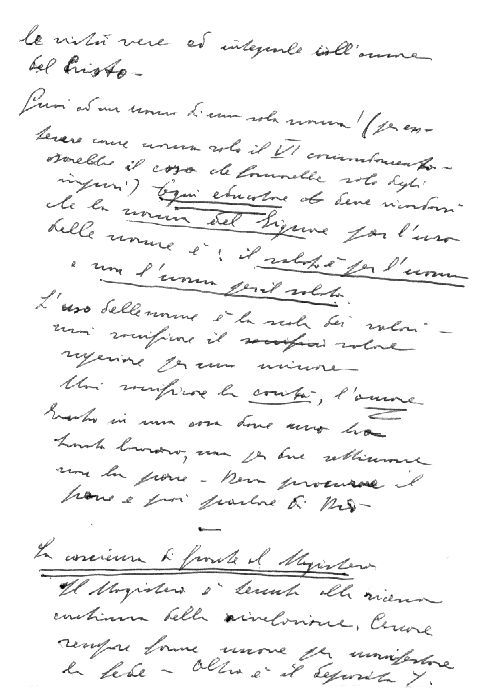 la virtù vera ed integrale coll'amore
del Cristo -
Guai ad un uomo di una sola norma! (per es
tenere come norma solo il VI comandamento -
sarebbe il caso che formerebbe solo degli
impuri) Ogni educatore deve ricordarsi
che la norma del Signore per l'uso
delle norme è: il sabato è per l'uomo
e non l'uomo per il sabato.
L'uso delle norme è la scala dei valori -
mai sacrificare il valore
superiore per uno minore -
Mai sacrificare la carità, l'amore
Entro in una casa dove uno ha
tanto lavoro, ma per due settimane
non ha pane - Devo procurare il
pane e poi parlare di Dio -
La coscienza di fronte al Magistero
Il Magistero è tenuto alla ricerca
continua della rivelazione. Cercare
sempre forme nuove per manifestare
la fede - Altro è il deposito